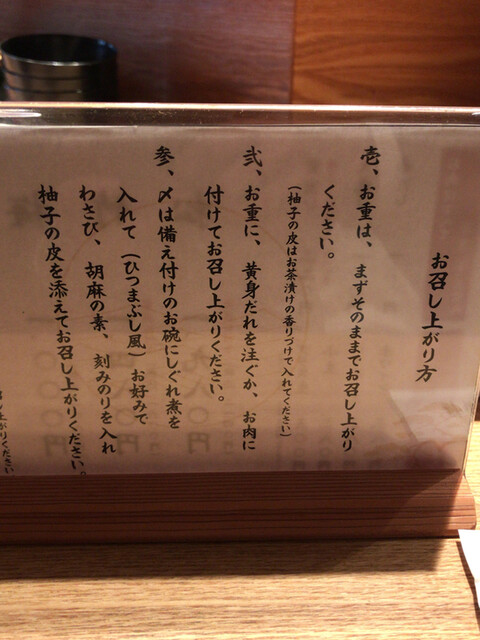 お召し上がり方
壱、お重は、まずそのままでお召し上がり
ください。
（柚子の皮はお茶漬けの香りづけで入れてください）
弐、お重に、黄身だれを注ぐか、お肉に
付けてお召し上がりください。
参、〆は備え付けのお碗にしぐれ煮を
入れて（ひつまぶし風）お好みで
わさび、胡麻の素、刻みのりを入れ
柚子の皮を添えてお召し上がりください。
上がりください